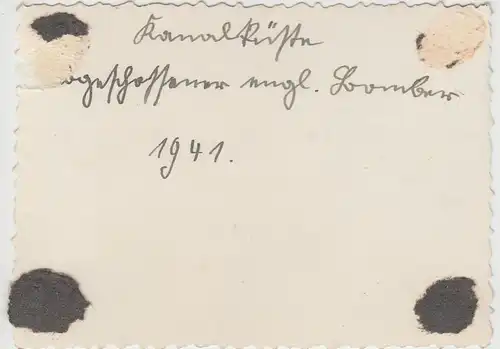 Kanalküste
abgeschossener engl. Bomber
1941.